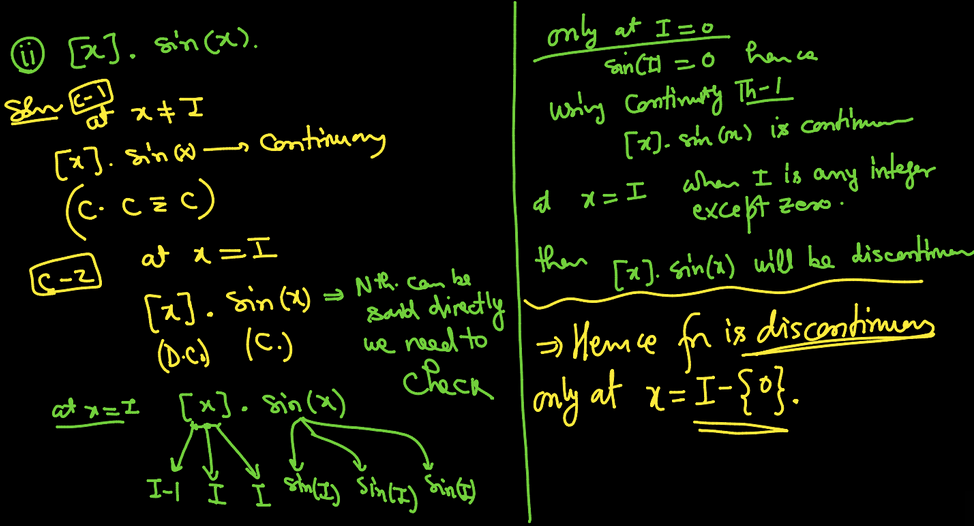 (ii) [x]. sin(x).
Soln C-1
at x ≠ I
[x]. sin(x) → Continuous
(C. C ≡ C)
C-2 at x = I
[x]. sin(x) ⇒ Nth. can be
said directly
we need to
Check
(D.C.) (C.)
at x=I [x]. sin(x)
I-1 I I sin(I) sin(I) sin(I)
only at I=0
sin(I) = 0 hence
using Continuity Th-1
[x]. sin(x) is continuous
at x = I when I is any integer
except zero.
then [x]. sin(x) will be discontinuous
⇒ Hence fn is discontinuous
only at x = I-{0}.